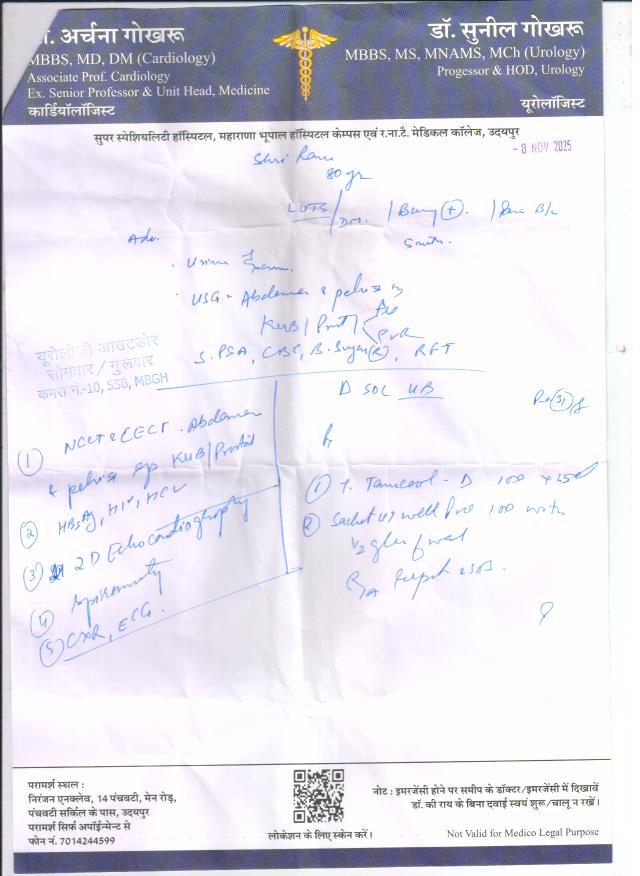 . अर्चना गोखरू
MBBS, MD, DM (Cardiology)
Associate Prof. Cardiology
Ex. Senior Professor & Unit Head, Medicine
कार्डियॉलॉजिस्ट
डॉ. सुनील गोखरू
MBBS, MS, MNAMS, MCh (Urology)
Progessor & HOD, Urology
यूरोलॉजिस्ट
सुपर स्पेशियलिटी हॉस्पिटल, महाराणा भूपाल हॉस्पिटल केम्पस एवं र.ना.टै. मेडिकल कॉलेज, उदयपुर
- 8 NOV 2025
Shri Ram
80 yr
LUTS / DM. / +
Adv.
Urine
USG - Abdomen & pelvis
KUB / Prost
PVR
S. PSA, CBC, B. Sugar (R), RFT
यूरोलोजी आउटडोर
सोमवार / गुरूवार
कमरा नं.-10, SSB, MBGH
D SOL UB
① NCCT & CECT. Abdomen
& pelvis KUB/Prostat
② HBsAg, HIV, HCV
③ 2D Echocardiography
④ Spirometry
⑤ CXR, ECG.
① T. - D 100
② Sachet 100 with
1/2 glass of
परामर्श स्थल :
निरंजन एनक्लेव, 14 पंचवटी, मेन रोड़,
पंचवटी सर्किल के पास, उदयपुर
परामर्श सिर्फ अपॉईन्मेन्ट से
फोन नं. 7014244599
लोकेशन के लिए स्केन करें।
नोट : इमरजेंसी होने पर समीप के डॉक्टर/इमरजेंसी में दिखावें
डॉ. की राय के बिना दवाई स्वयं शुरू/चालू न रखें।
Not Valid for Medico Legal Purpose